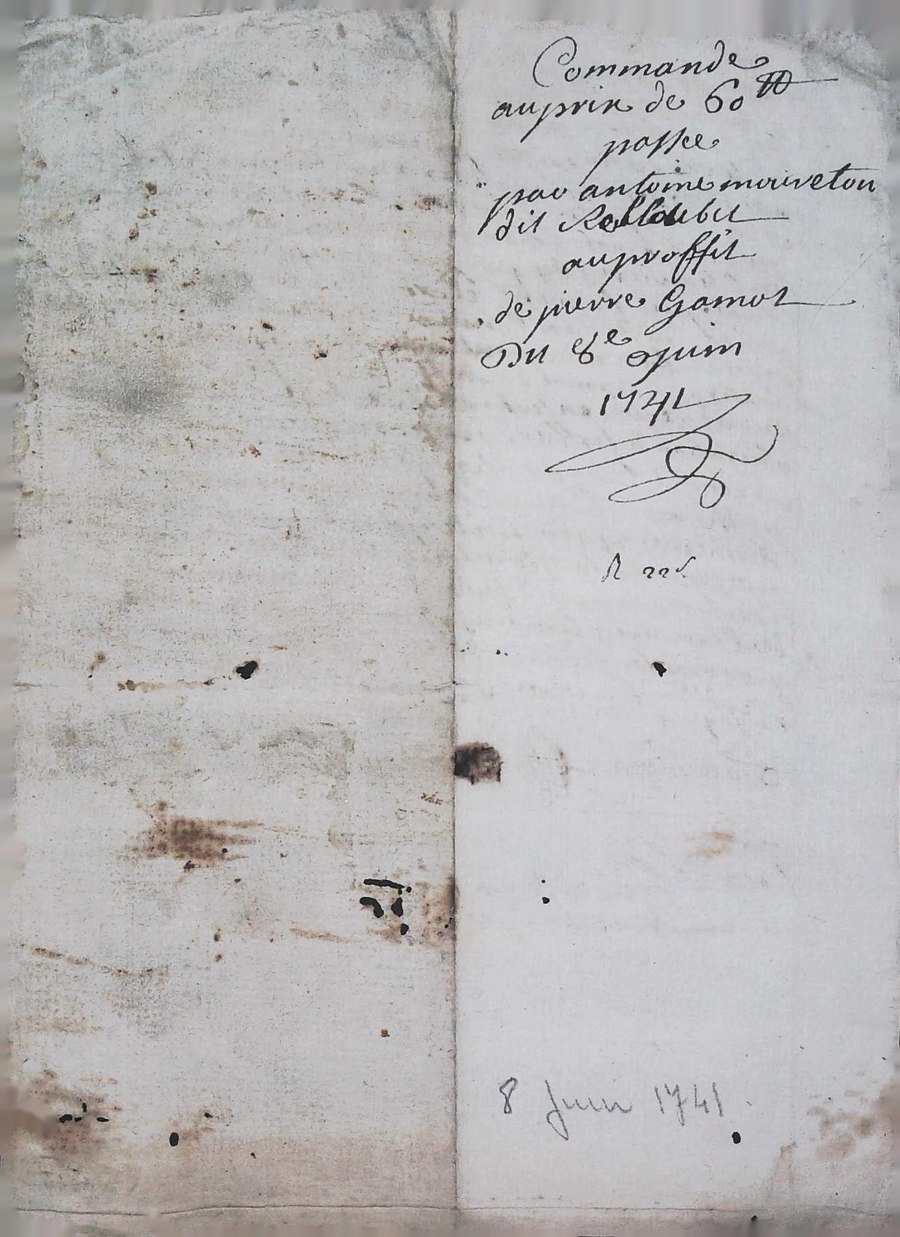 Commande
au prix de 60 tt
passee
par antoine mouveton
dit
au proffit
de pierre Gamot
Du 8e Juin
1741
R 22 s
8 Juin 1741.